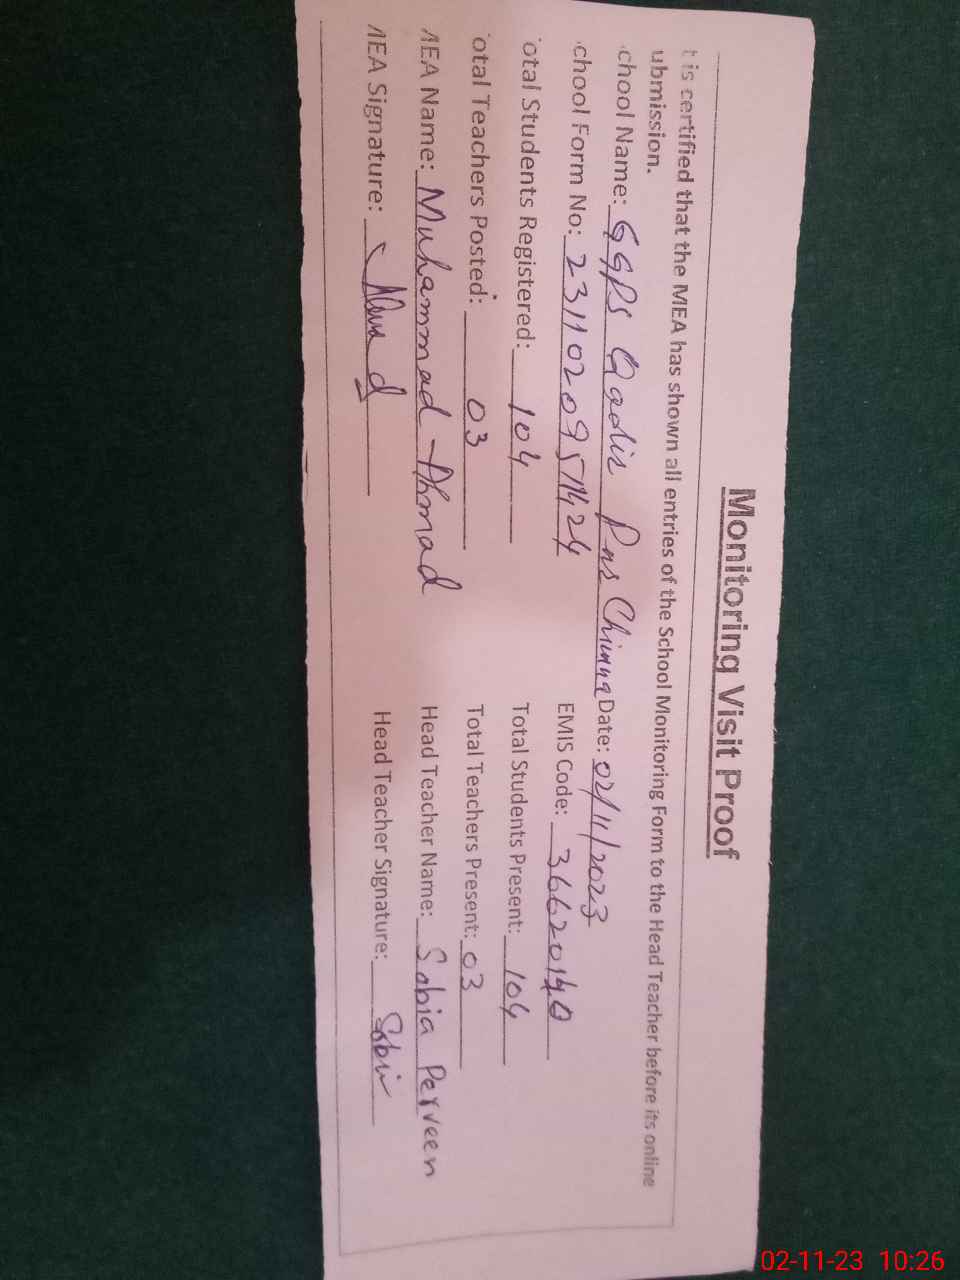 Monitoring Visit Proof
t is certified that the MEA has shown all entries of the School Monitoring Form to the Head Teacher before its online
ubmission.
chool Name: GGPS Qadir Pur Chimna Date: 02/11/2023
chool Form No: EMIS Code: 36620140
otal Students Registered: 104 Total Students Present: 104
otal Teachers Posted: 03 Total Teachers Present: 03
MEA Name: Muhammad Ahmad Head Teacher Name: Sabia Perveen
MEA Signature: Head Teacher Signature:
02-11-23 10:26